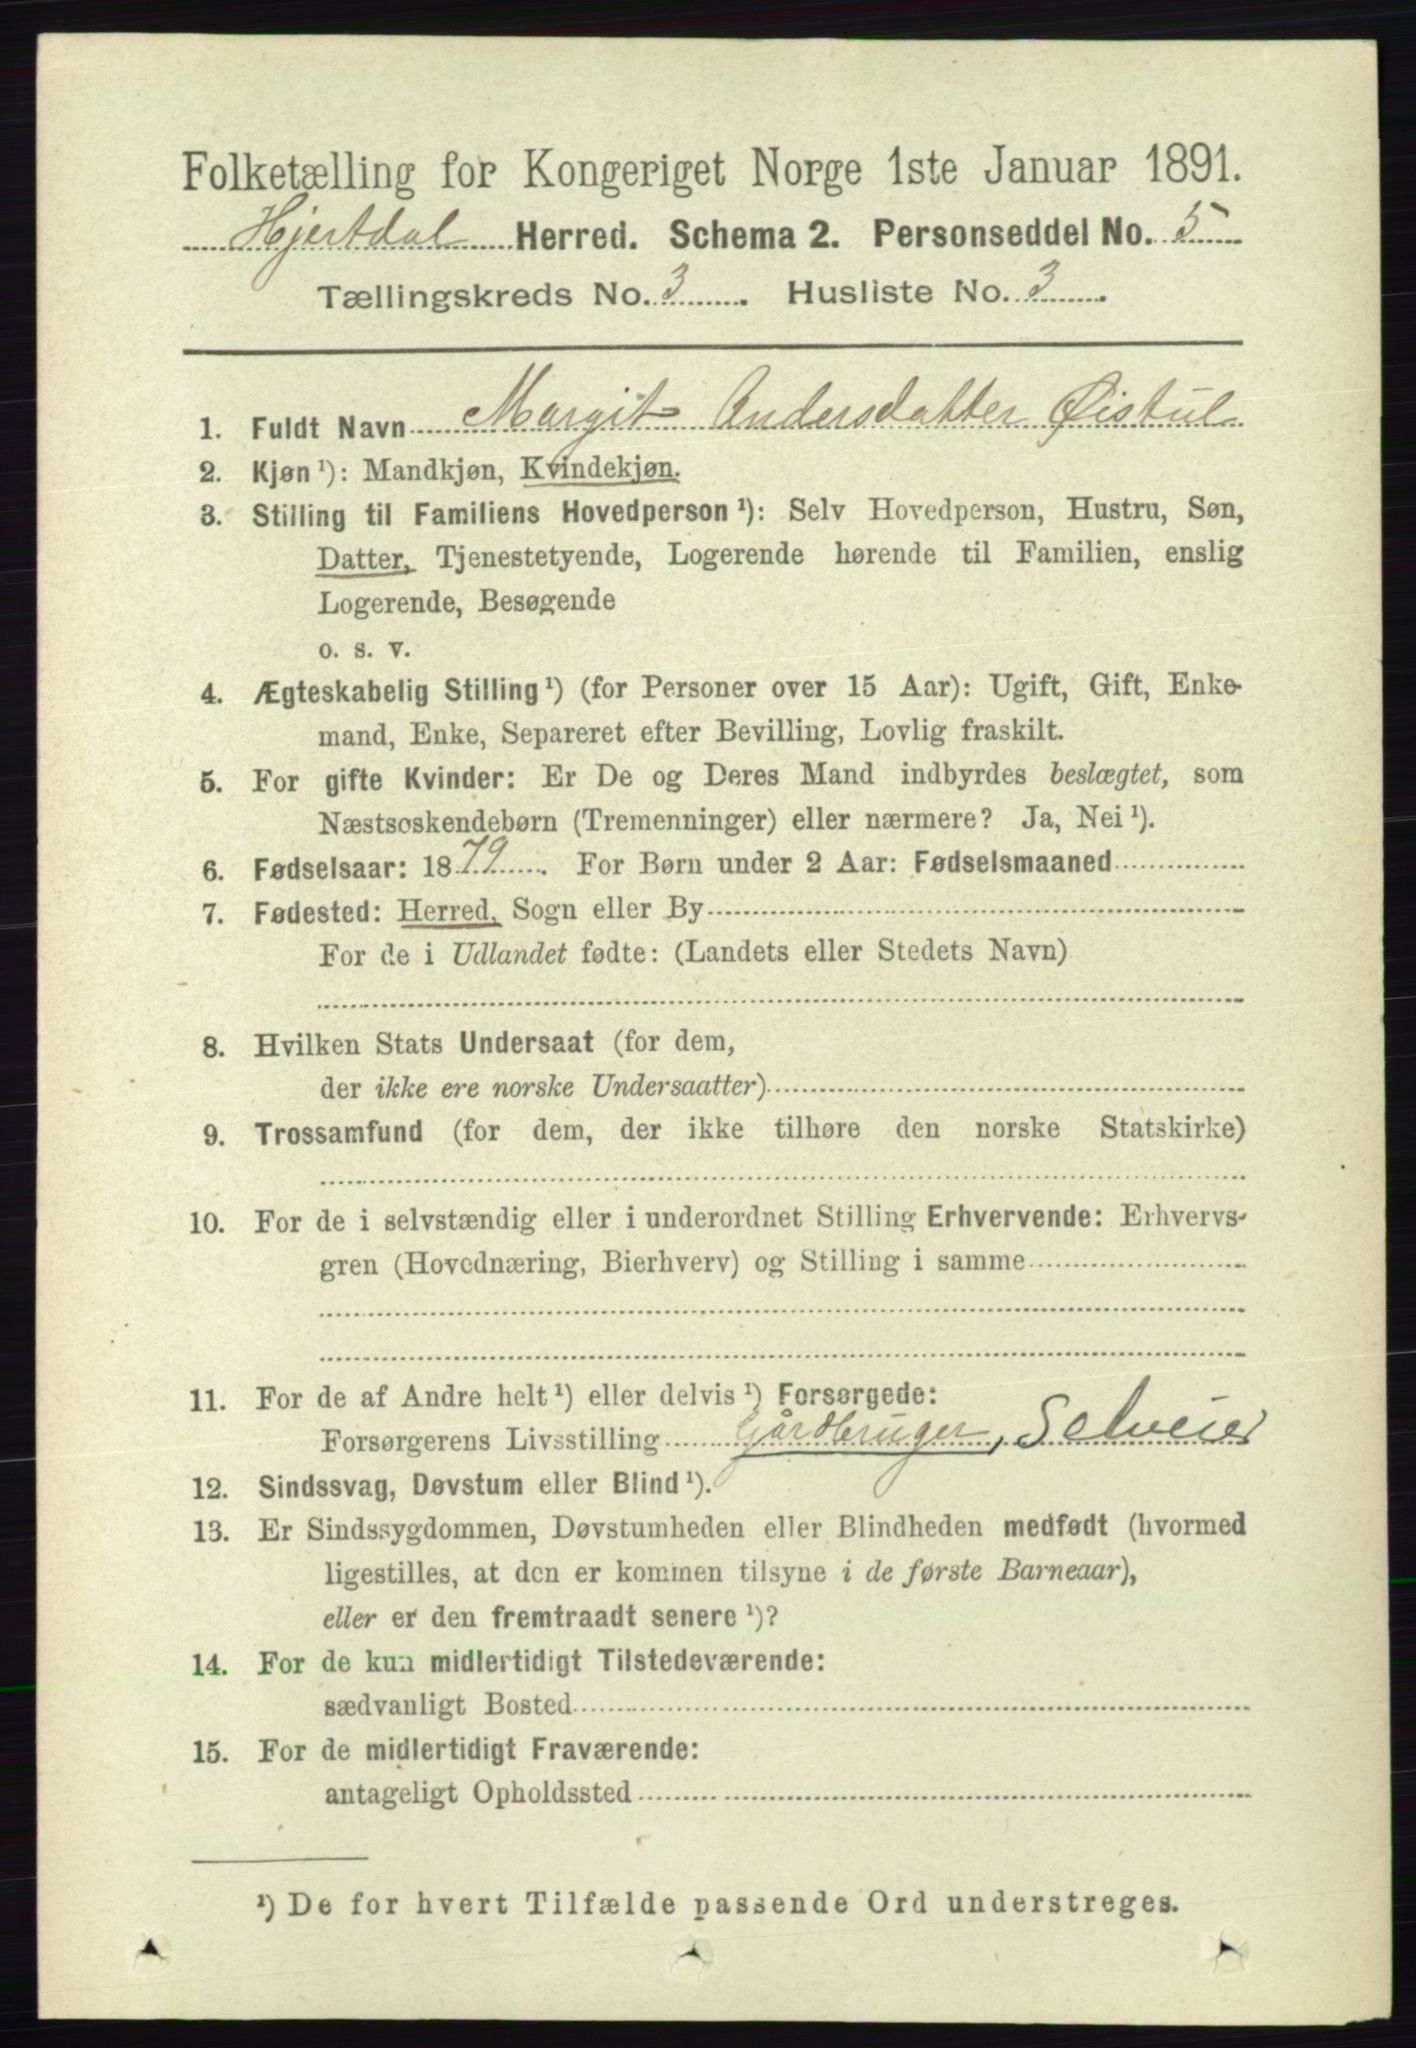 Folketælling for Kongeriget Norge 1ste Januar 1891.
Hjertdal Herred. Schema 2. Personseddel No. 5
Tællingskreds No. 3. Husliste No. 3.
1. Fuldt Navn Margit Andersdatter Øistul
2. Kjøn ¹): Mandkjøn, Kvindekjøn.
3. Stilling til Familiens Hovedperson ¹): Selv Hovedperson, Hustru, Søn,
Datter, Tjenestetyende, Logerende hørende til Familien, enslig
Logerende, Besøgende
o. s. v.
4. Ægteskabelig Stilling ¹) (for Personer over 15 Aar): Ugift, Gift, Enke-
mand, Enke, Separeret efter Bevilling, Lovlig fraskilt.
5. For gifte Kvinder: Er De og Deres Mand indbyrdes beslægtet, som
Næstsøskendebørn (Tremenninger) eller nærmere? Ja, Nei ¹).
6. Fødselsaar: 1879. For Børn under 2 Aar: Fødselsmaaned
7. Fødested: Herred, Sogn eller By
For de i Udlandet fødte: (Landets eller Stedets Navn)
8. Hvilken Stats Undersaat (for dem,
der ikke ere norske Undersaatter)
9. Trossamfund (for dem, der ikke tilhøre den norske Statskirke)
10. For de i selvstændig eller i underordnet Stilling Erhvervende: Erhvervs-
gren (Hovednæring, Bierhverv) og Stilling i samme
11. For de af Andre helt ¹) eller delvis ¹) Forsørgede:
Forsørgerens Livsstilling Gårdbruger, Selveier
12. Sindssvag, Døvstum eller Blind ¹).
13. Er Sindssygdommen, Døvstumheden eller Blindheden medfødt (hvormed
ligestilles, at den er kommen tilsyne i de første Barneaar),
eller er den fremtraadt senere ¹)?
14. For de kun midlertidigt Tilstedeværende:
sædvanligt Bosted
15. For de midlertidigt Fraværende:
antageligt Opholdssted
¹) De for hvert Tilfælde passende Ord understreges.